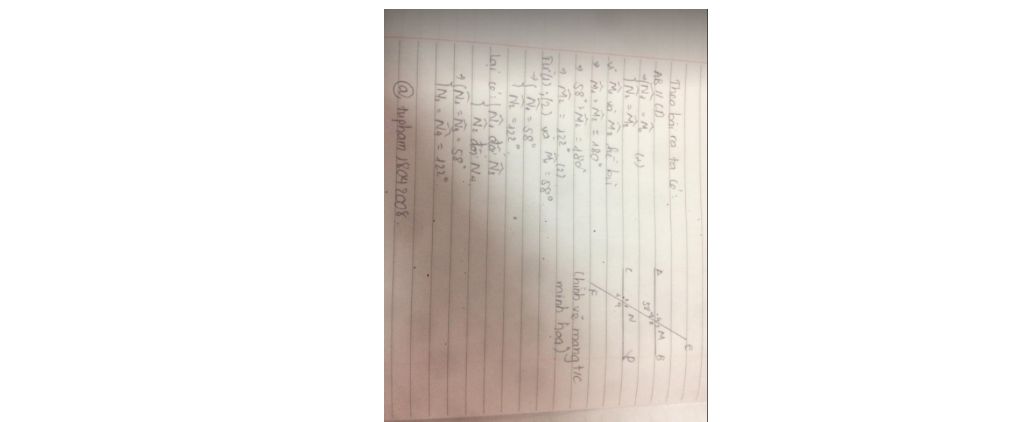 Theo bài ra ta có:
AB // CD
→ { N̂₁ = M̂₁
{ N̂₂ = M̂₂ (1)
Vì M̂₁ và M̂₂ kề bù
→ M̂₁ + M̂₂ = 180°
→ 58° + M̂₂ = 180°
→ M̂₂ = 122° (2)
Từ (1), (2) và M̂₁ = 58°
→ { N̂₁ = 58°
{ N̂₂ = 122°
Lại có { N̂₁ đối N̂₃
{ N̂₂ đối N̂₄
→ { N̂₁ = N̂₃ = 58°
{ N̂₂ = N̂₄ = 122°
@ tvpham18042008.
E
A M B
58°
C N D
F
(hình vẽ mang t/c
minh hoạ)